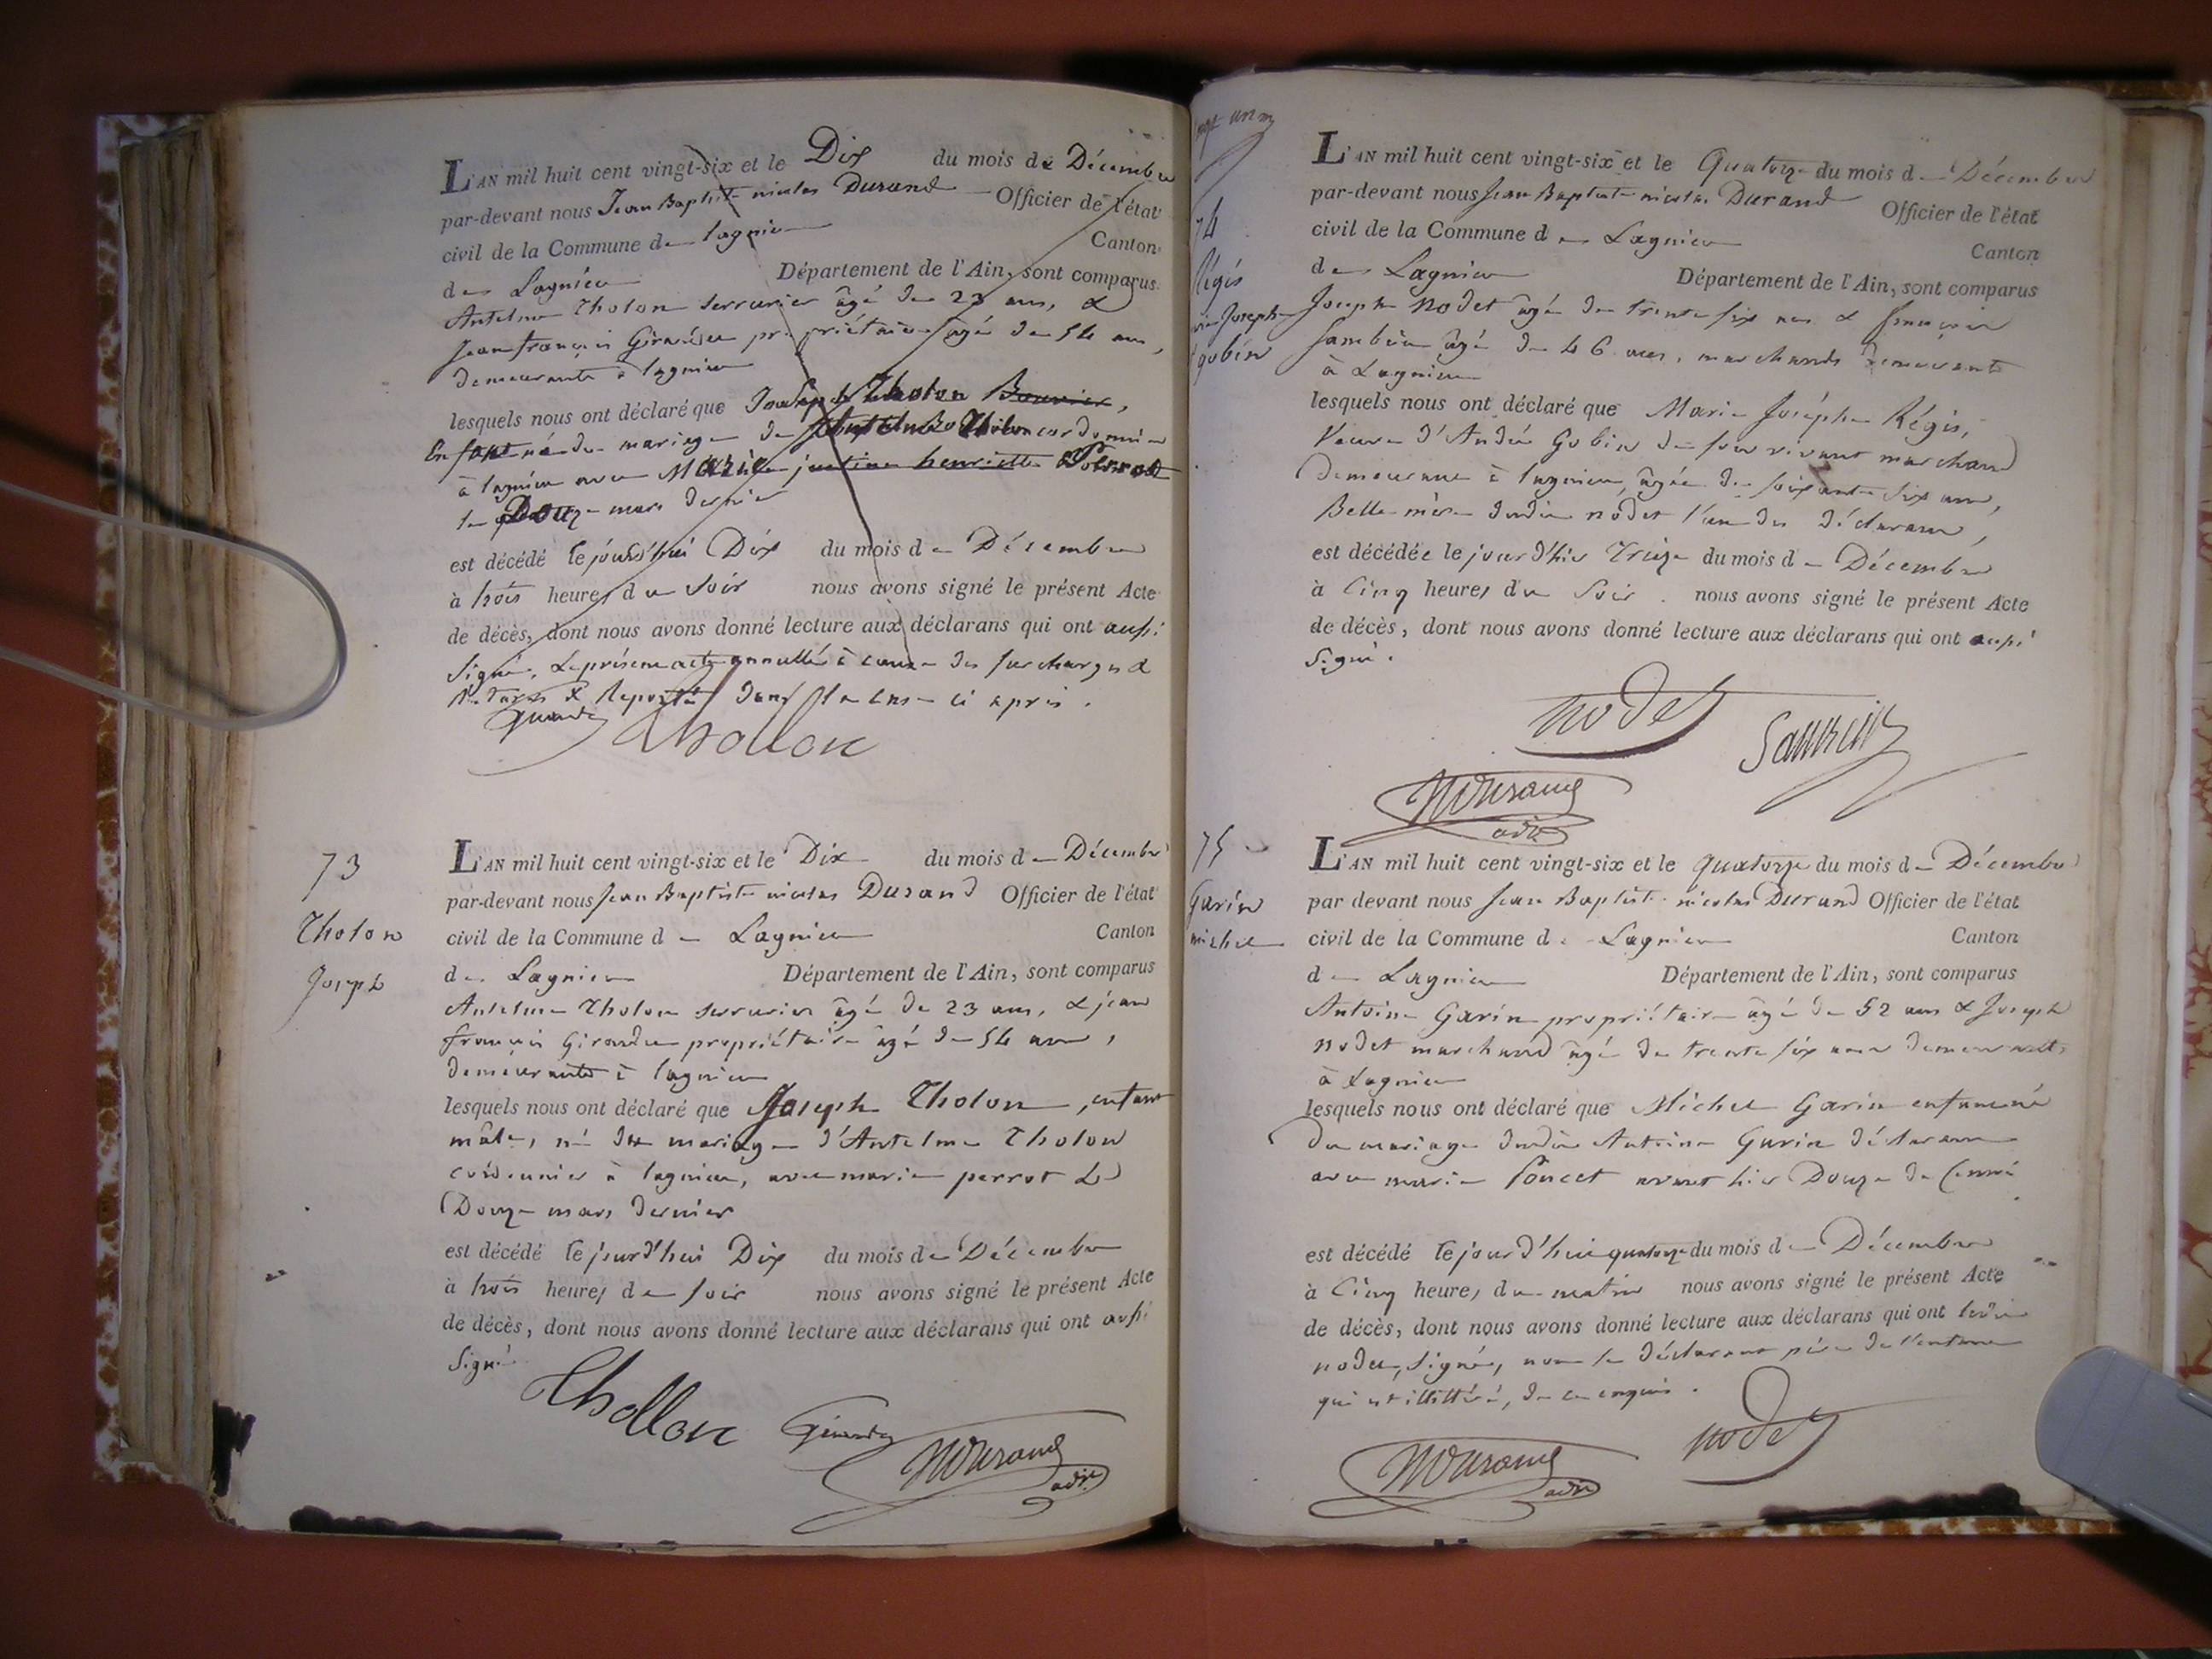 L'AN mil huit cent vingt-six et le Dix du mois de Décembre
par-devant nous Jean Baptiste nicolas Durand Officier de l'état
civil de la Commune de lagnieu Canton
de Lagnieu Département de l'Ain, sont comparus
Antelme Tholon serrurier âgé de 23 ans, &
Jean françois Girardin propriétaire âgé de 54 ans,
demeurants à lagnieu
lesquels nous ont déclaré que Joseph Tholon Bouvier,
Enfant né du mariage de Antelme Tholon cordonnier
à lagnieu avec Marie justine henriette Perrot
le Douze mars dernier
est décédé le jourd'hui Dix du mois de Décembre
à trois heures du soir nous avons signé le présent Acte
de décès, dont nous avons donné lecture aux déclarans qui ont aussi
signé. Le présent acte annullé à cause des surcharges &
Ratures & Reporté dans la case ci après.
Thollon
73
Tholon
Joseph
L'AN mil huit cent vingt-six et le Dix du mois de Décembre
par-devant nous Jean Baptiste nicolas Durand Officier de l'état
civil de la Commune de Lagnieu Canton
de Lagnieu Département de l'Ain, sont comparus
Antelme Tholon serrurier âgé de 23 ans, & jean
françois Girardin propriétaire âgé de 54 ans,
demeurants à lagnieu
lesquels nous ont déclaré que Joseph Tholon, enfant
mâle, né du mariage d'Antelme Tholon
cordonnier à lagnieu, avec marie perrot le
Douze mars dernier
est décédé le jourd'hui Dix du mois de Décembre
à trois heures du soir nous avons signé le présent Acte
de décès, dont nous avons donné lecture aux déclarans qui ont aussi
signé
Thollon Girardin NDurand
adjt
74
Régis
Joseph
gobin
L'AN mil huit cent vingt-six et le Quatorze du mois de Décembre
par-devant nous Jean Baptiste nicolas Durand Officier de l'état
civil de la Commune de Lagnieu Canton
de Lagnieu Département de l'Ain, sont comparus
Joseph Nodet âgé de trente six ans & françois
âgé de 46 ans, marchands demeurants
à Lagnieu
lesquels nous ont déclaré que Marie Josephe Régis,
Veuve d'André Gobin de son vivant marchand
demeurant à lagnieu, âgée de soixante six ans,
Belle-mère dudit nodet l'un des déclarans,
est décédée le jour d'hier Treize du mois de Décembre
à Cinq heures du Soir. nous avons signé le présent Acte
de décès, dont nous avons donné lecture aux déclarans qui ont aussi
signé.
nodet
NDurand
adjt
75
Garin
michel
L'AN mil huit cent vingt-six et le quatorze du mois de Décembre
par devant nous Jean Baptiste nicolas Durand Officier de l'état
civil de la Commune de Lagnieu Canton
de Lagnieu Département de l'Ain, sont comparus
Antoine Garin propriétaire âgé de 52 ans & Joseph
nodet marchand âgé de trente six ans demeurants
à Lagnieu
lesquels nous ont déclaré que Michel Garin enfant né
du mariage dudit Antoine Garin déclarant
avec marie Poncet avant hier Douze de ce mois
est décédé le jour d'hui quatorze du mois de Décembre
à Cinq heures du matin nous avons signé le présent Acte
de décès, dont nous avons donné lecture aux déclarans qui ont ledit
nodet, signé, non le déclarant père de l'enfant
qui est illitéré, de ce enquis.
NDurand nodet
adjt